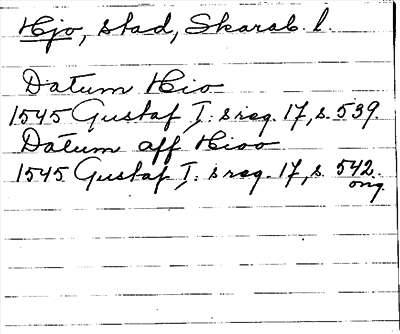 Hjo, stad, Skarab. l.
Datum Hio
1545 Gustaf I:s reg. 17, s. 539.
Datum aff Hioo
1545 Gustaf I:s reg. 17, s. 542.
orig.